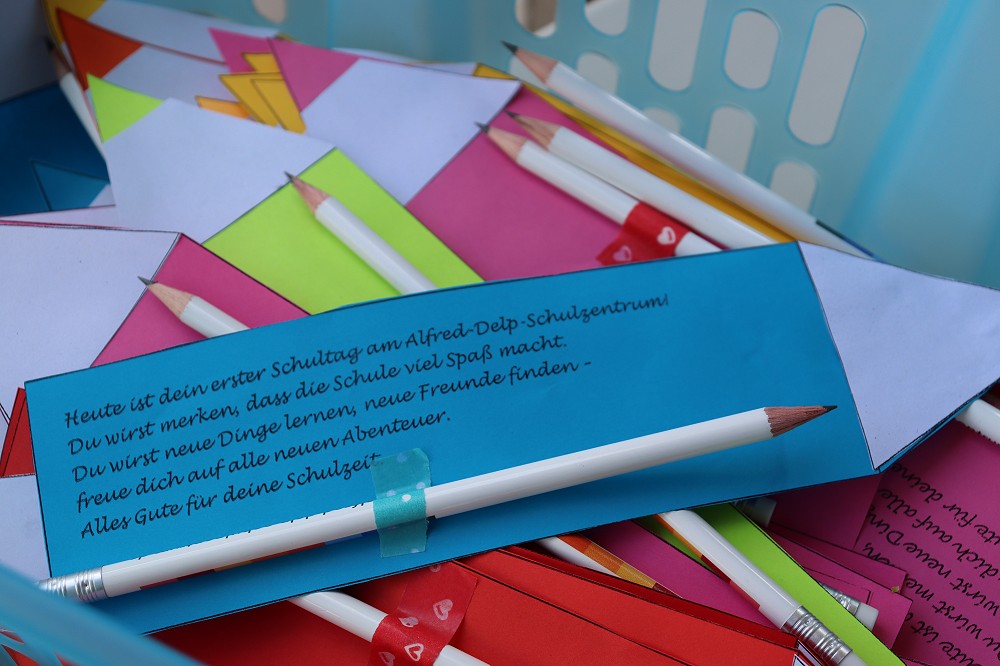 Heute ist dein erster Schultag am Alfred-Delp-Schulzentrum!
Du wirst merken, dass die Schule viel Spaß macht.
Du wirst neue Dinge lernen, neue Freunde finden –
freue dich auf alle neuen Abenteuer.
Alles Gute für deine Schulzeit
ute ist
u wirst me
wirst neue Din
dich auf alle
ute für deine